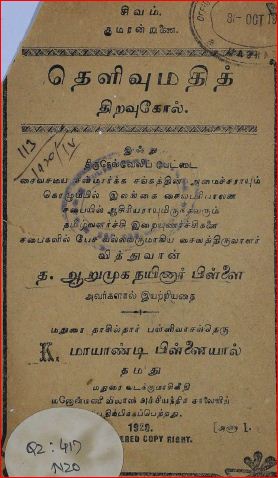 சிவம்.
குமரன் துணை.
31 OCT 19
தெளிவுமதித்
திறவுகோல்.
113
1020/IV
இஃது
திருநெல்வேலிப் பேட்டை
சைவசமய சன்மார்க்க சங்கத்தின் அமைச்சராயும்
கொழும்பில் இலங்கை சைவபரிபாலன
சபையில் ஆசிரியராயுமிருந்தவரும்
தமிழ்வளர்ச்சி இறையுணர்ச்சிகளே
சபைகளில் பேச வல்லவருமாகிய சைவத்திருவாளர்
வித்துவான்
த. ஆறுமுக நயினார் பிள்ளை
அவர்களால் இயற்றியதை
மதுரை தாசில்தார் பள்ளிவாசல்தெரு
K. மாயாண்டி பிள்ளையால்
தமது
மதுரை வடக்குமாசிவீதி
மனோன்மணி விலாஸ் அச்சியந்திர சாலையில்
பதிப்பிக்கப்பெற்றது.
1920.
[அணா 1.
ERED COPY RIGHT.
Q2:417
N20